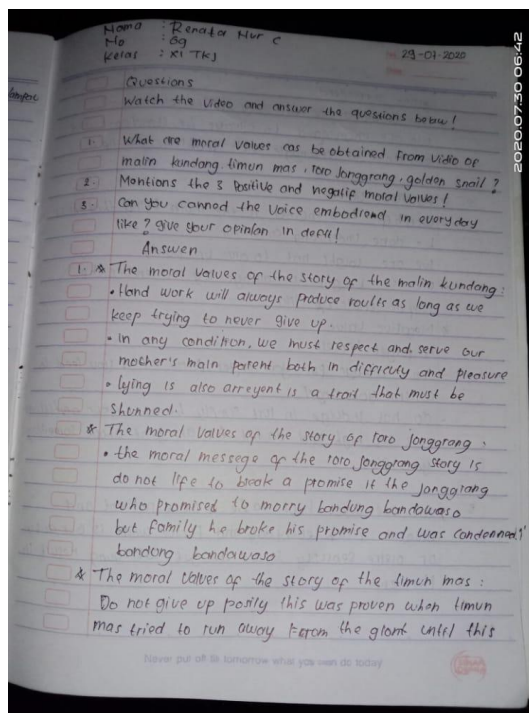 Nama : Renata Nur C
No : 69
Kelas : XI TKJ
29-07-2020
Questions
Watch the video and answer the questions below!
1. What are moral values cas be obtained from vidio of
malin kundang, timun mas, roro Jonggrang, golden snail?
2. Mentions the 3 Positive and negatif moral values!
3. Can you canned the voice embodiend in everyday
like? give your opinion in detil!
Answer
1. * The moral values of the story of the malin kundang :
• Hand work will always produce roults as long as we
keep trying to never give up.
• In any condition, we must respect and serve our
mother's main parent both in difficuty and pleasure
• lying is also arreyent is a trait that must be
shunned.
* The moral values of the story of roro jonggrang .
• the moral messege of the roro Jonggrang story is
do not life to break a promise if the jonggrang
who promised to morry bandung bandowaso
but family he broke his promise and was condenned
bandung bandawaso
* The moral values of the story of the timun mas :
Do not give up posily this was proven when timun
mas tried to run away from the giant until this
Never put off til tomorrow what you can do today
2020.07.30 06:42